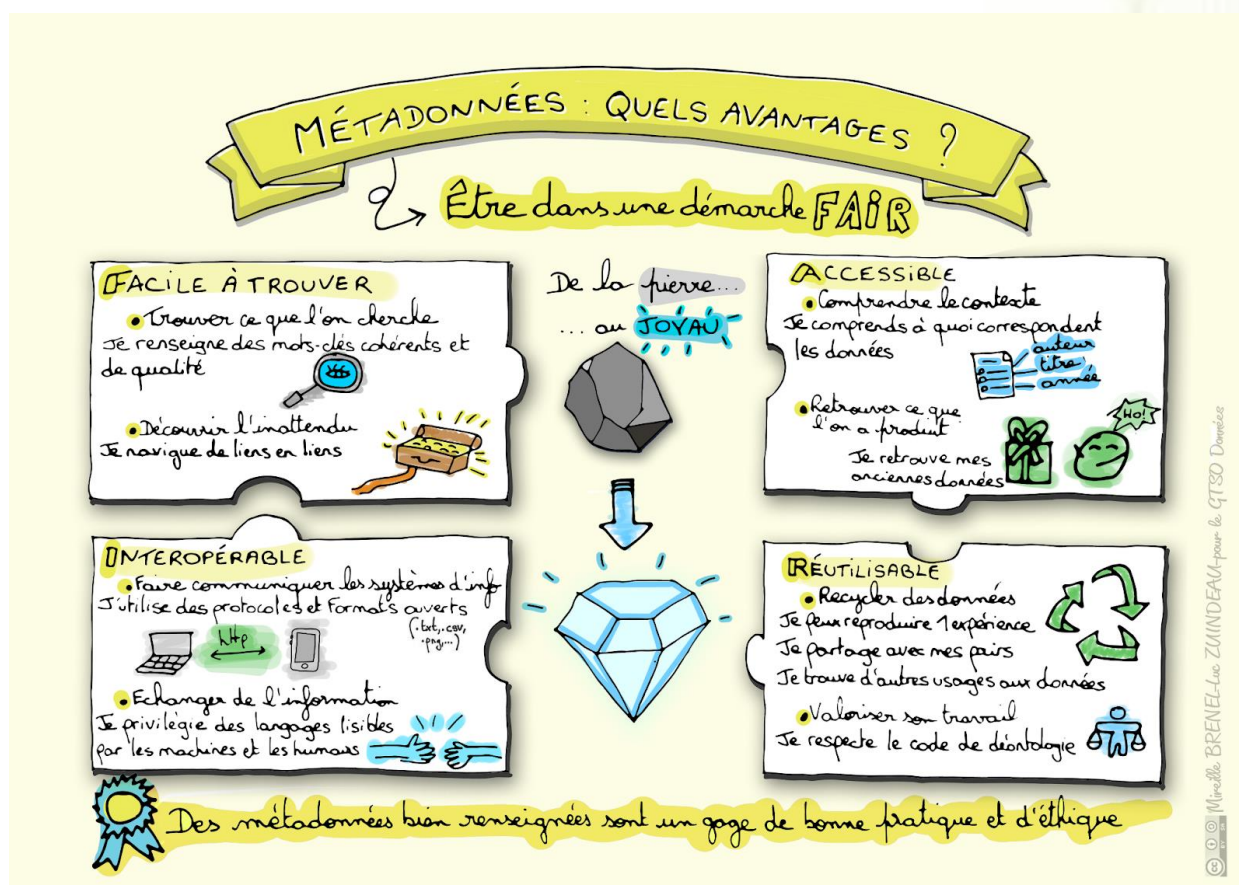 MÉTADONNÉES : QUELS AVANTAGES ?
Être dans une démarche FAiR
FACiLE À TROUVER
• Trouver ce que l'on cherche
Je renseigne des mots-clés cohérents et
de qualité
• Découvrir l'inattendu
Je navigue de liens en liens
De la pierre...
... au JOYAU
ACCESSiBLE
• Comprendre le contexte
Je comprends à quoi correspondent
les données
auteur
titre
année
• Retrouver ce que
l'on a produit
Wo!
Je retrouve mes
anciennes données
INTEROPÉRABLE
• Faire communiquer les systèmes d'inf
J'utilise des protocoles et Formats ouverts
(.txt, .csv,
.png,...)
http
• Echanger de l'information
Je privilégie des langages lisibles
par les machines et les humains
RÉUTiLiSABLE
• Recycler des données
Je peux reproduire 1 expérience
Je partage avec mes pairs
Je trouve d'autres usages aux données
• Valoriser son travail
Je respecte le code de déontologie
Des métadonnées bien renseignées sont un gage de bonne pratique et d'éthique
Mireille BRENEL-Luc ZUINDEAU-pour le GTSO Données
BY SA